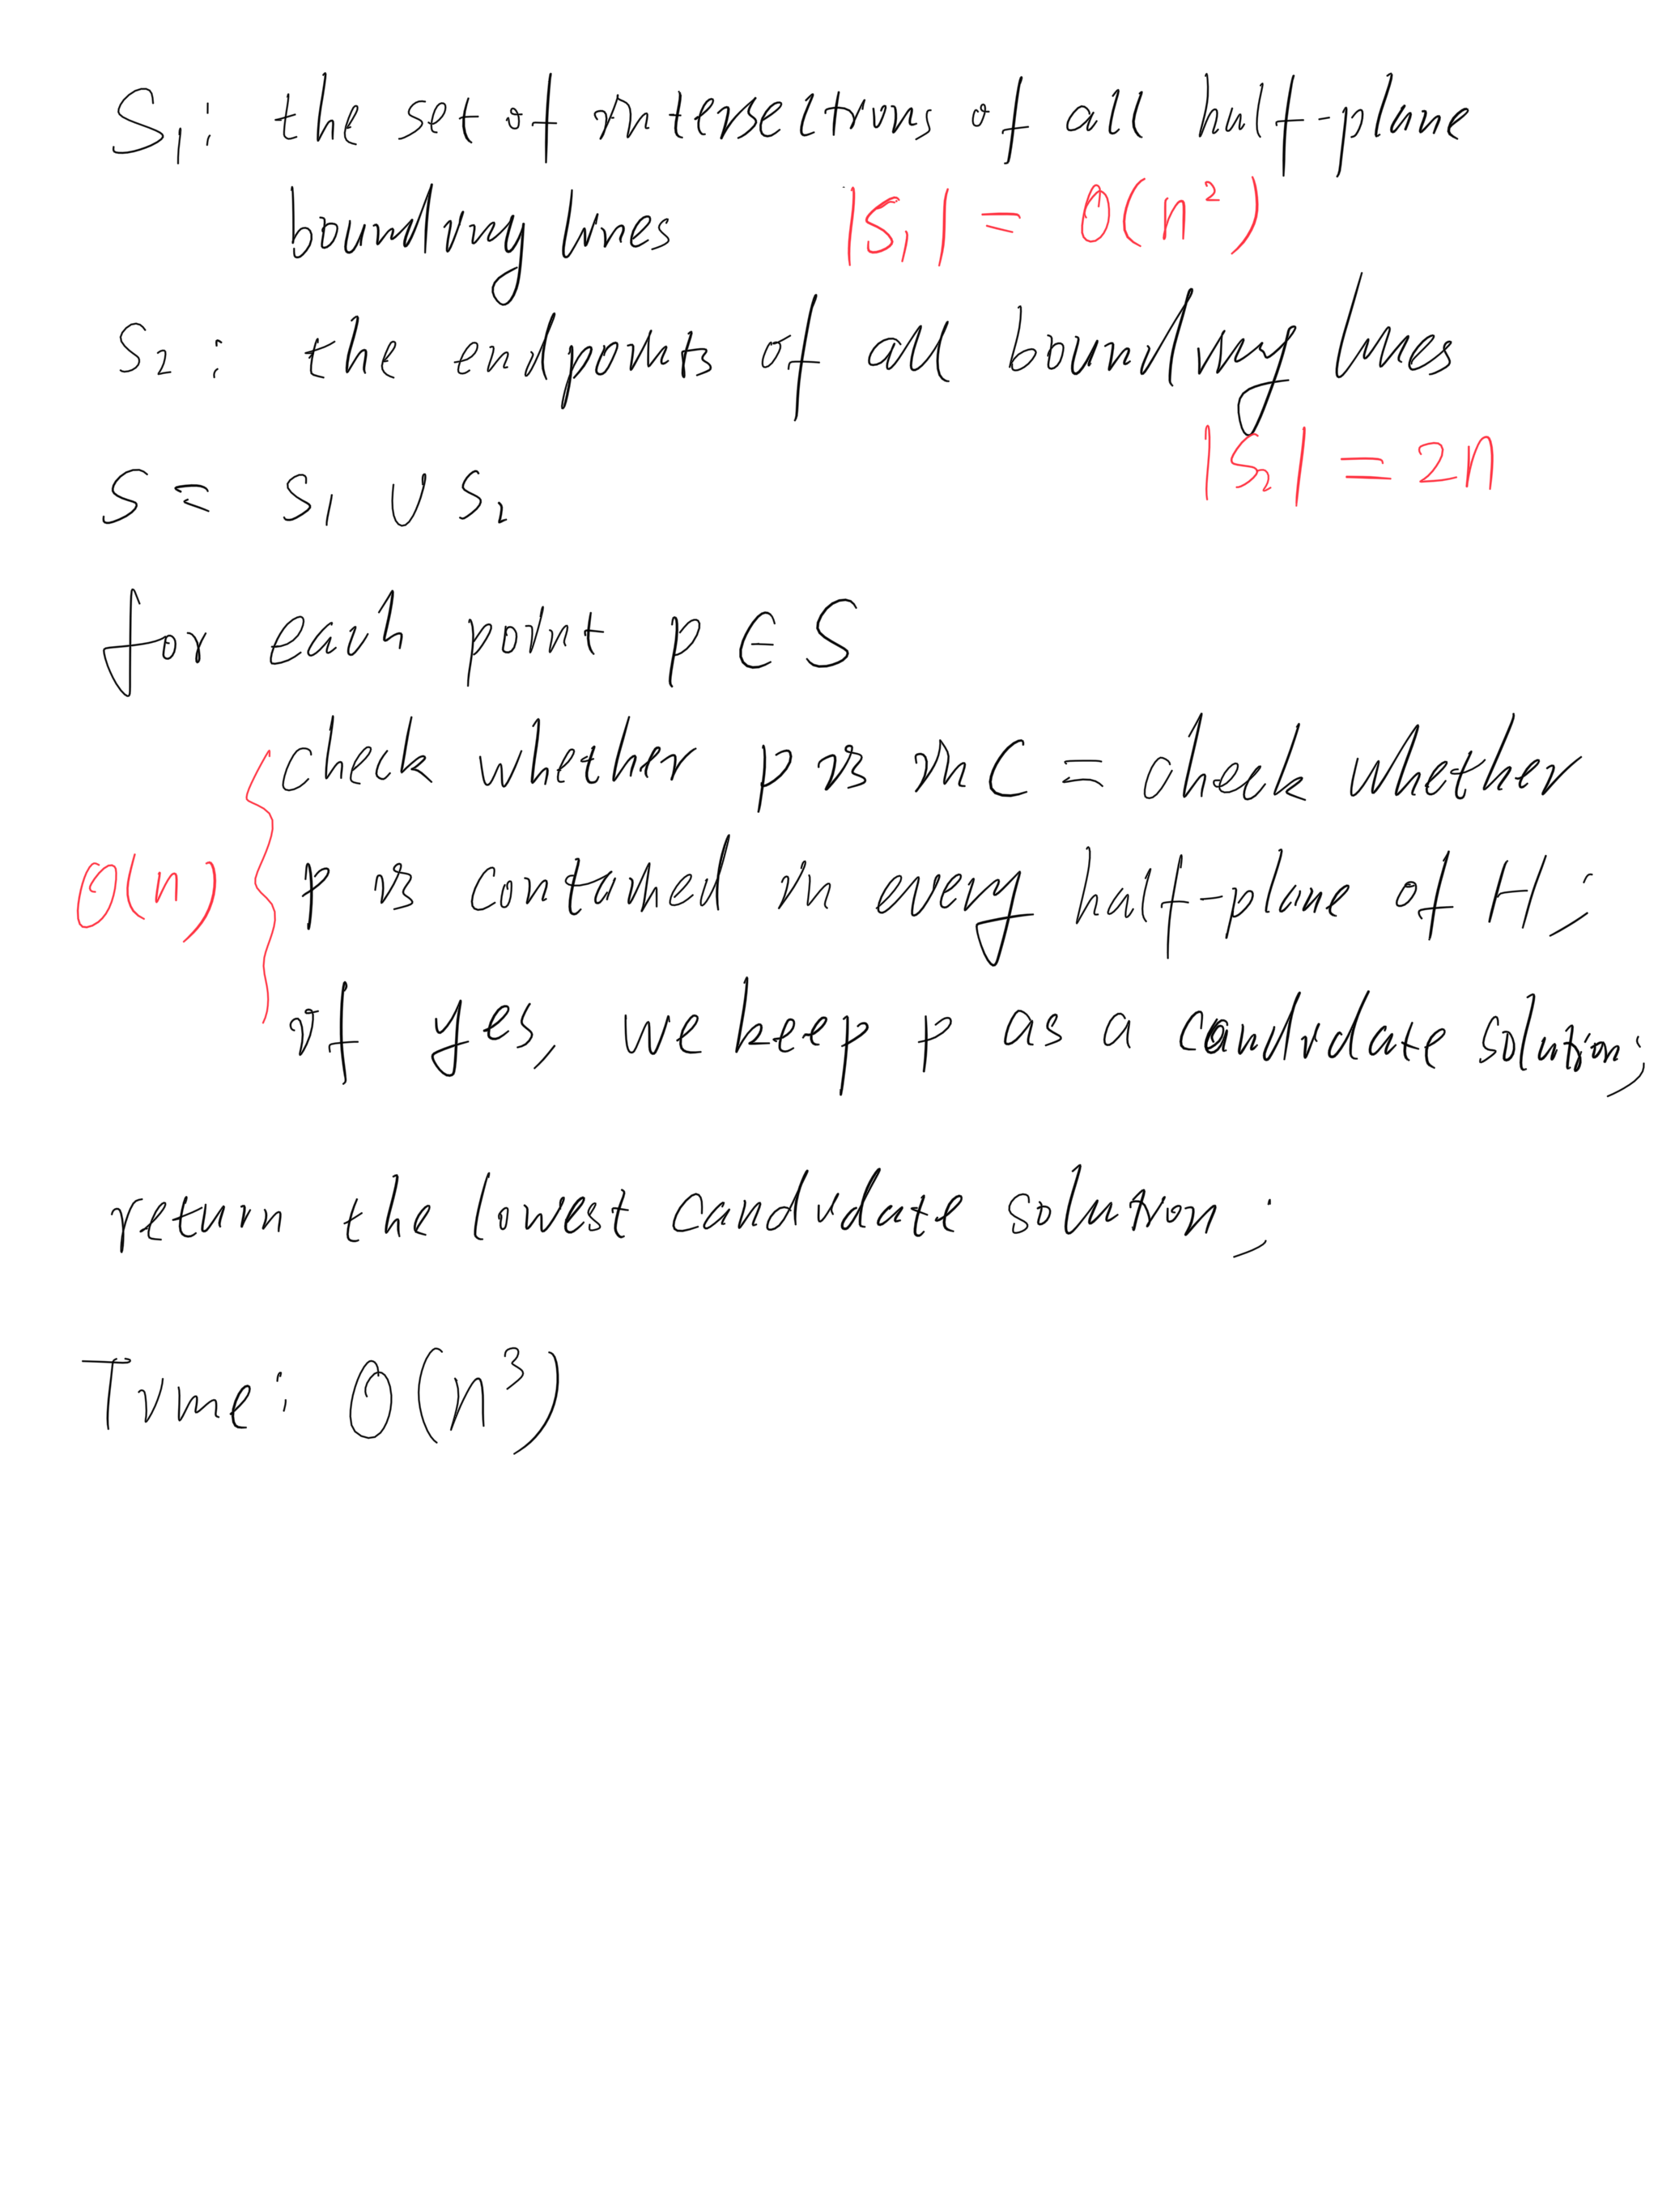 S₁: the set of intersections of all half-plane
bounding lines |S₁| = O(n²)
S₂: the endpoints of all bounding lines
|S₂| = 2n
S = S₁ ∪ S₂
for each point p ∈ S
check whether p is in C = check whether
O(n) { p is contained in every half-plane of H;
if yes, we keep p as a candidate solution;
return the lowest candidate solution;
Time: O(n³)